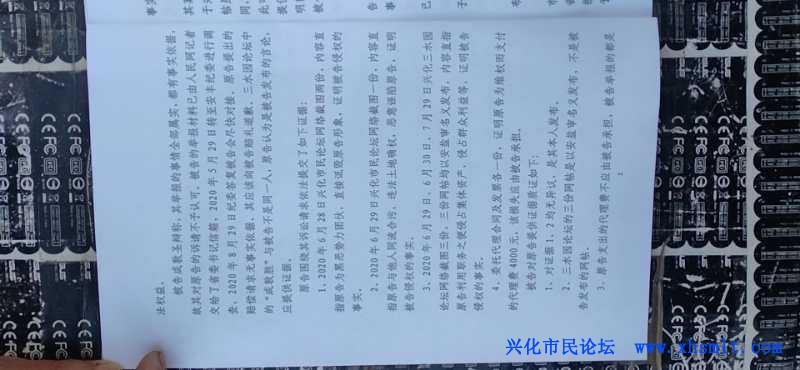 法权益。
被告成敢胜辩称，其举报的事情全部属实，都有事实依据，
故其对原告的诉请不予认可。被告的举报材料已由人民网记者
交给了省委书记信箱，2020年5月29日转至安丰纪委进行调
查，2020年8月29日纪委答复被告会尽快对接。原告提出的
赔偿请求无事实依据，其应该向被告赔礼道歉。三水园论坛中
的“成敢胜”与被告不是同一人，原告认为是被告发布的言论，
应提供证据。
原告围绕其诉讼请求依法提交了如下证据：
1、2020年6月28日兴化市民论坛网络截图两份，内容直
指原告为黑恶势力团伙，直接诋毁原告形象，证明被告侵权的
事实。
2、2020年6月29日兴化市民论坛网络截图一份，内容直
指原告与他人同流合污，违法土地确权，恶意诬陷原告，证明
被告侵权的事实。
3、2020年6月29日、6月30日、7月29日兴化三水园
论坛网络截图三份，三份网帖均以安盐审名义发布，内容直指
原告利用职务之便侵占集体资产，侵占群众利益等，证明被告
侵权的事实。
4、委托代理合同及发票各一份，证明原告为维权而支付
的代理费4000元，该损失应由被告承担。
被告对原告提供证据质证如下：
1、对证据1、2均无异议，是其本人发布。
2、三水园论坛的三份网帖是以安盐审名义发布，不是被
告发布的网帖。
3、原告支出的代理费不应由被告承担，被告举报的都是
2
CE FC
兴化市民论坛 www.xhsmlt.com